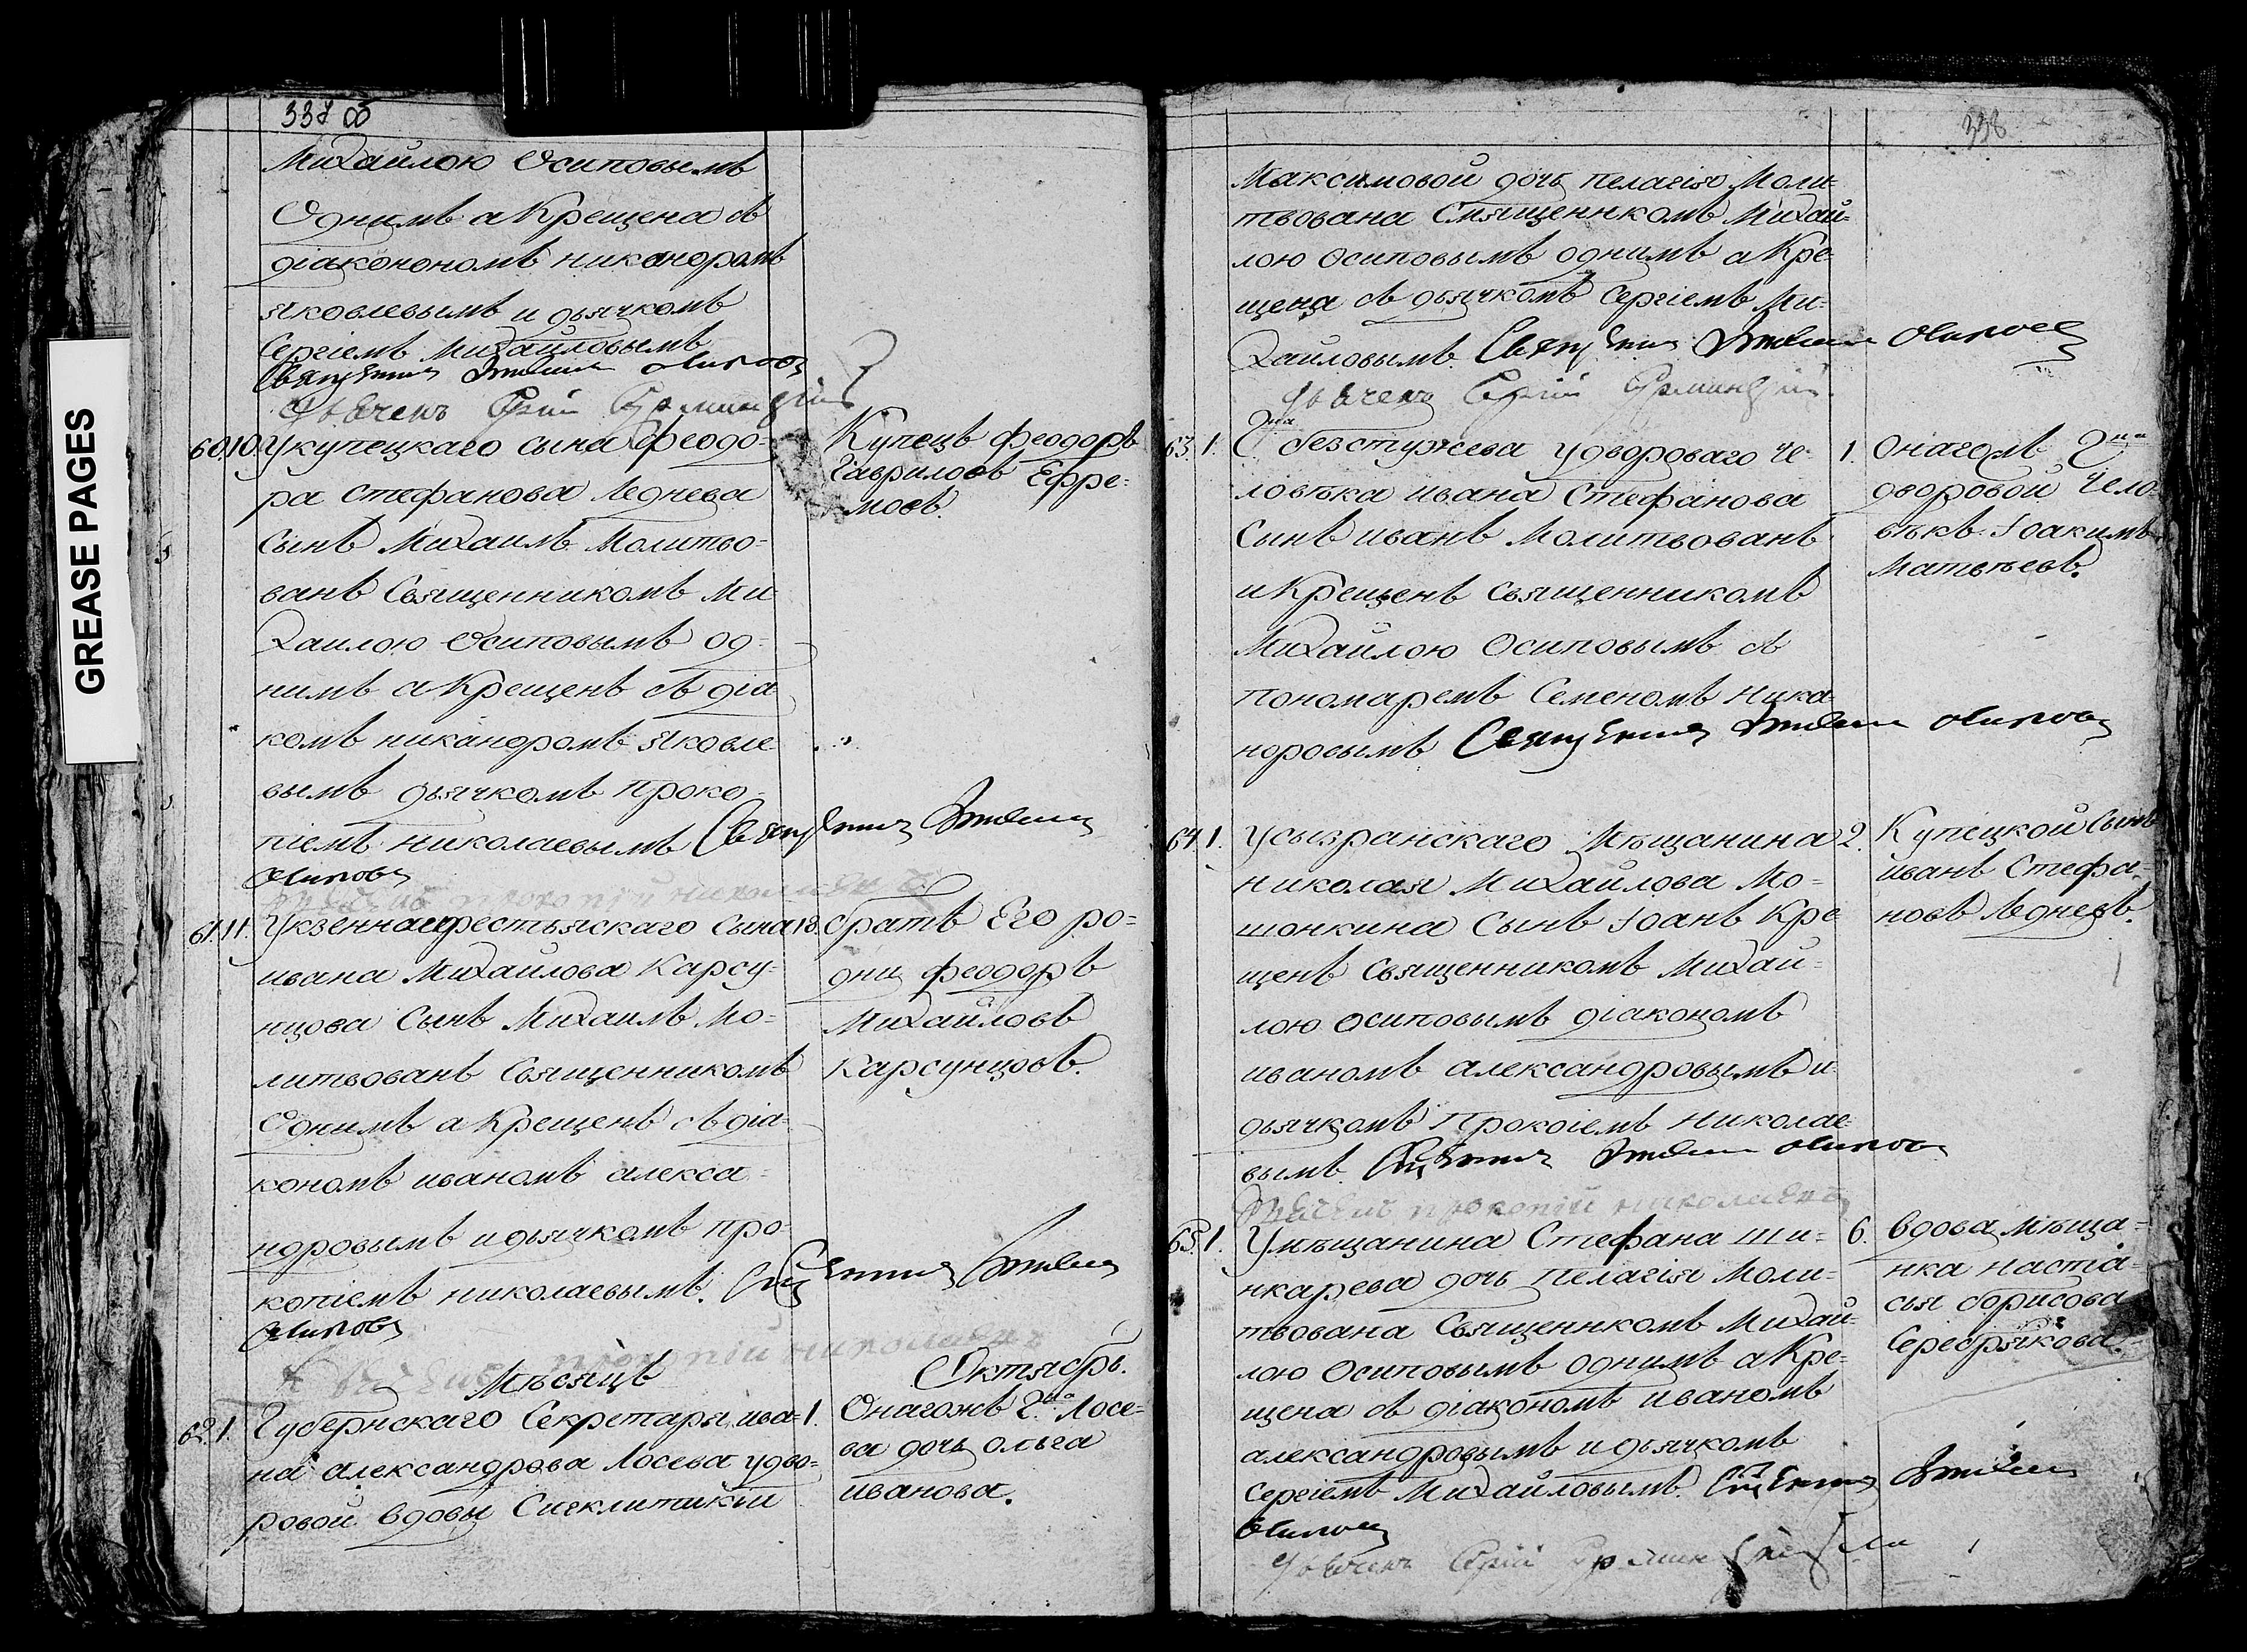 337 об
Михайлою Осиповымъ
Однимъ а Крещена съ
діакономомъ никандромъ
яковлевымъ и дьячкомъ
Сергіемъ Михайловымъ
Священникъ Михаилъ Осиповъ
Дьячекъ Сергій
60. 10. У купецкаго сына феодо-
ра стефанова Леднева
Сынъ Михаилъ Молитво-
ванъ Священникомъ Ми-
хаилою Осиповымъ од-
нимъ а Крещенъ съ діа-
комъ никандромъ яковле-
вымъ дьячкомъ проко-
піемъ николаевымъ Священникъ Михаилъ
Осиповъ
Дьячекъ прокопій николаевъ
Купецъ феодоръ
Гавриловъ Ефре-
мовъ.
61. 11. У кзеннаго крестьяскаго Сына 18.
ивана Михайлова Карсу-
нцова Сынъ Михаилъ Мо-
литвованъ Священникомъ
Однимъ а Крещенъ съ діа-
кономъ иваномъ алекса-
ндровымъ и дьячкомъ про-
копіемъ николаевымъ. Священникъ Михаилъ
Осиповъ
Дьячекъ прокопій николаевъ
братъ Его ро-
дны феодоръ
Михайловъ
Карсунцовъ.
Мѣсяцъ Октябрь.
62. 1. Губернскаго Секретаря ива- 1.
на александрова Лосева удво-
ровой вдовы Сигклитикіи
Онагожъ Гна Лосе-
ва дочь ольга
иванова.
GREASE PAGES
338
Максимовой дочь пелагія Моли-
твована Смященнкомъ Михай-
лою Осиповымъ однимъ а Кре-
щена съ дьячкомъ Сергіемъ Ми-
хайловымъ. Священникъ Михаилъ Осиповъ
Дьячекъ Сергій
63. 1. Гна безстужева удвороваго че- 1.
ловѣка ивана Стефанова
Сынъ иванъ Молитвованъ
и Крещенъ священникомъ
Михайлою Осиповымъ съ
пономаремъ Семеномъ Ника-
норовымъ Священникъ Михаилъ Осиповъ
Онагожъ Гна
дворовой Чело-
вѣкъ Іоакимъ
Матвѣевъ.
64. 1. Усызранскаго Мѣщанина 2.
николая Михайлова Мо-
шонкина Сынъ Іоанъ Кре
щенъ Священникомъ Михай-
лою Осиповымъ діакономъ
иваномъ александровымъ и
дьячкомъ Прокоіемъ Николае-
вымъ. Священникъ Михаилъ Осиповъ
Дьячекъ прокопій николаевъ
Купецкой Сынъ
иванъ Стефа-
новъ Ледневъ.
65. 1. Умѣщанина Стефана ши- 6.
нкарева дочь пелагія Моли-
твована Священнкомъ Михай-
лою Осиповымъ однимъ а Кре-
щена съ діакономъ иваномъ
александровымъ и дьячкомъ
Сергіемъ Михайловымъ. Священникъ Михаилъ
Осиповъ
Дьячекъ Сергій
вдова мѣща-
нка наста-
сья борисова
Серебрякова.